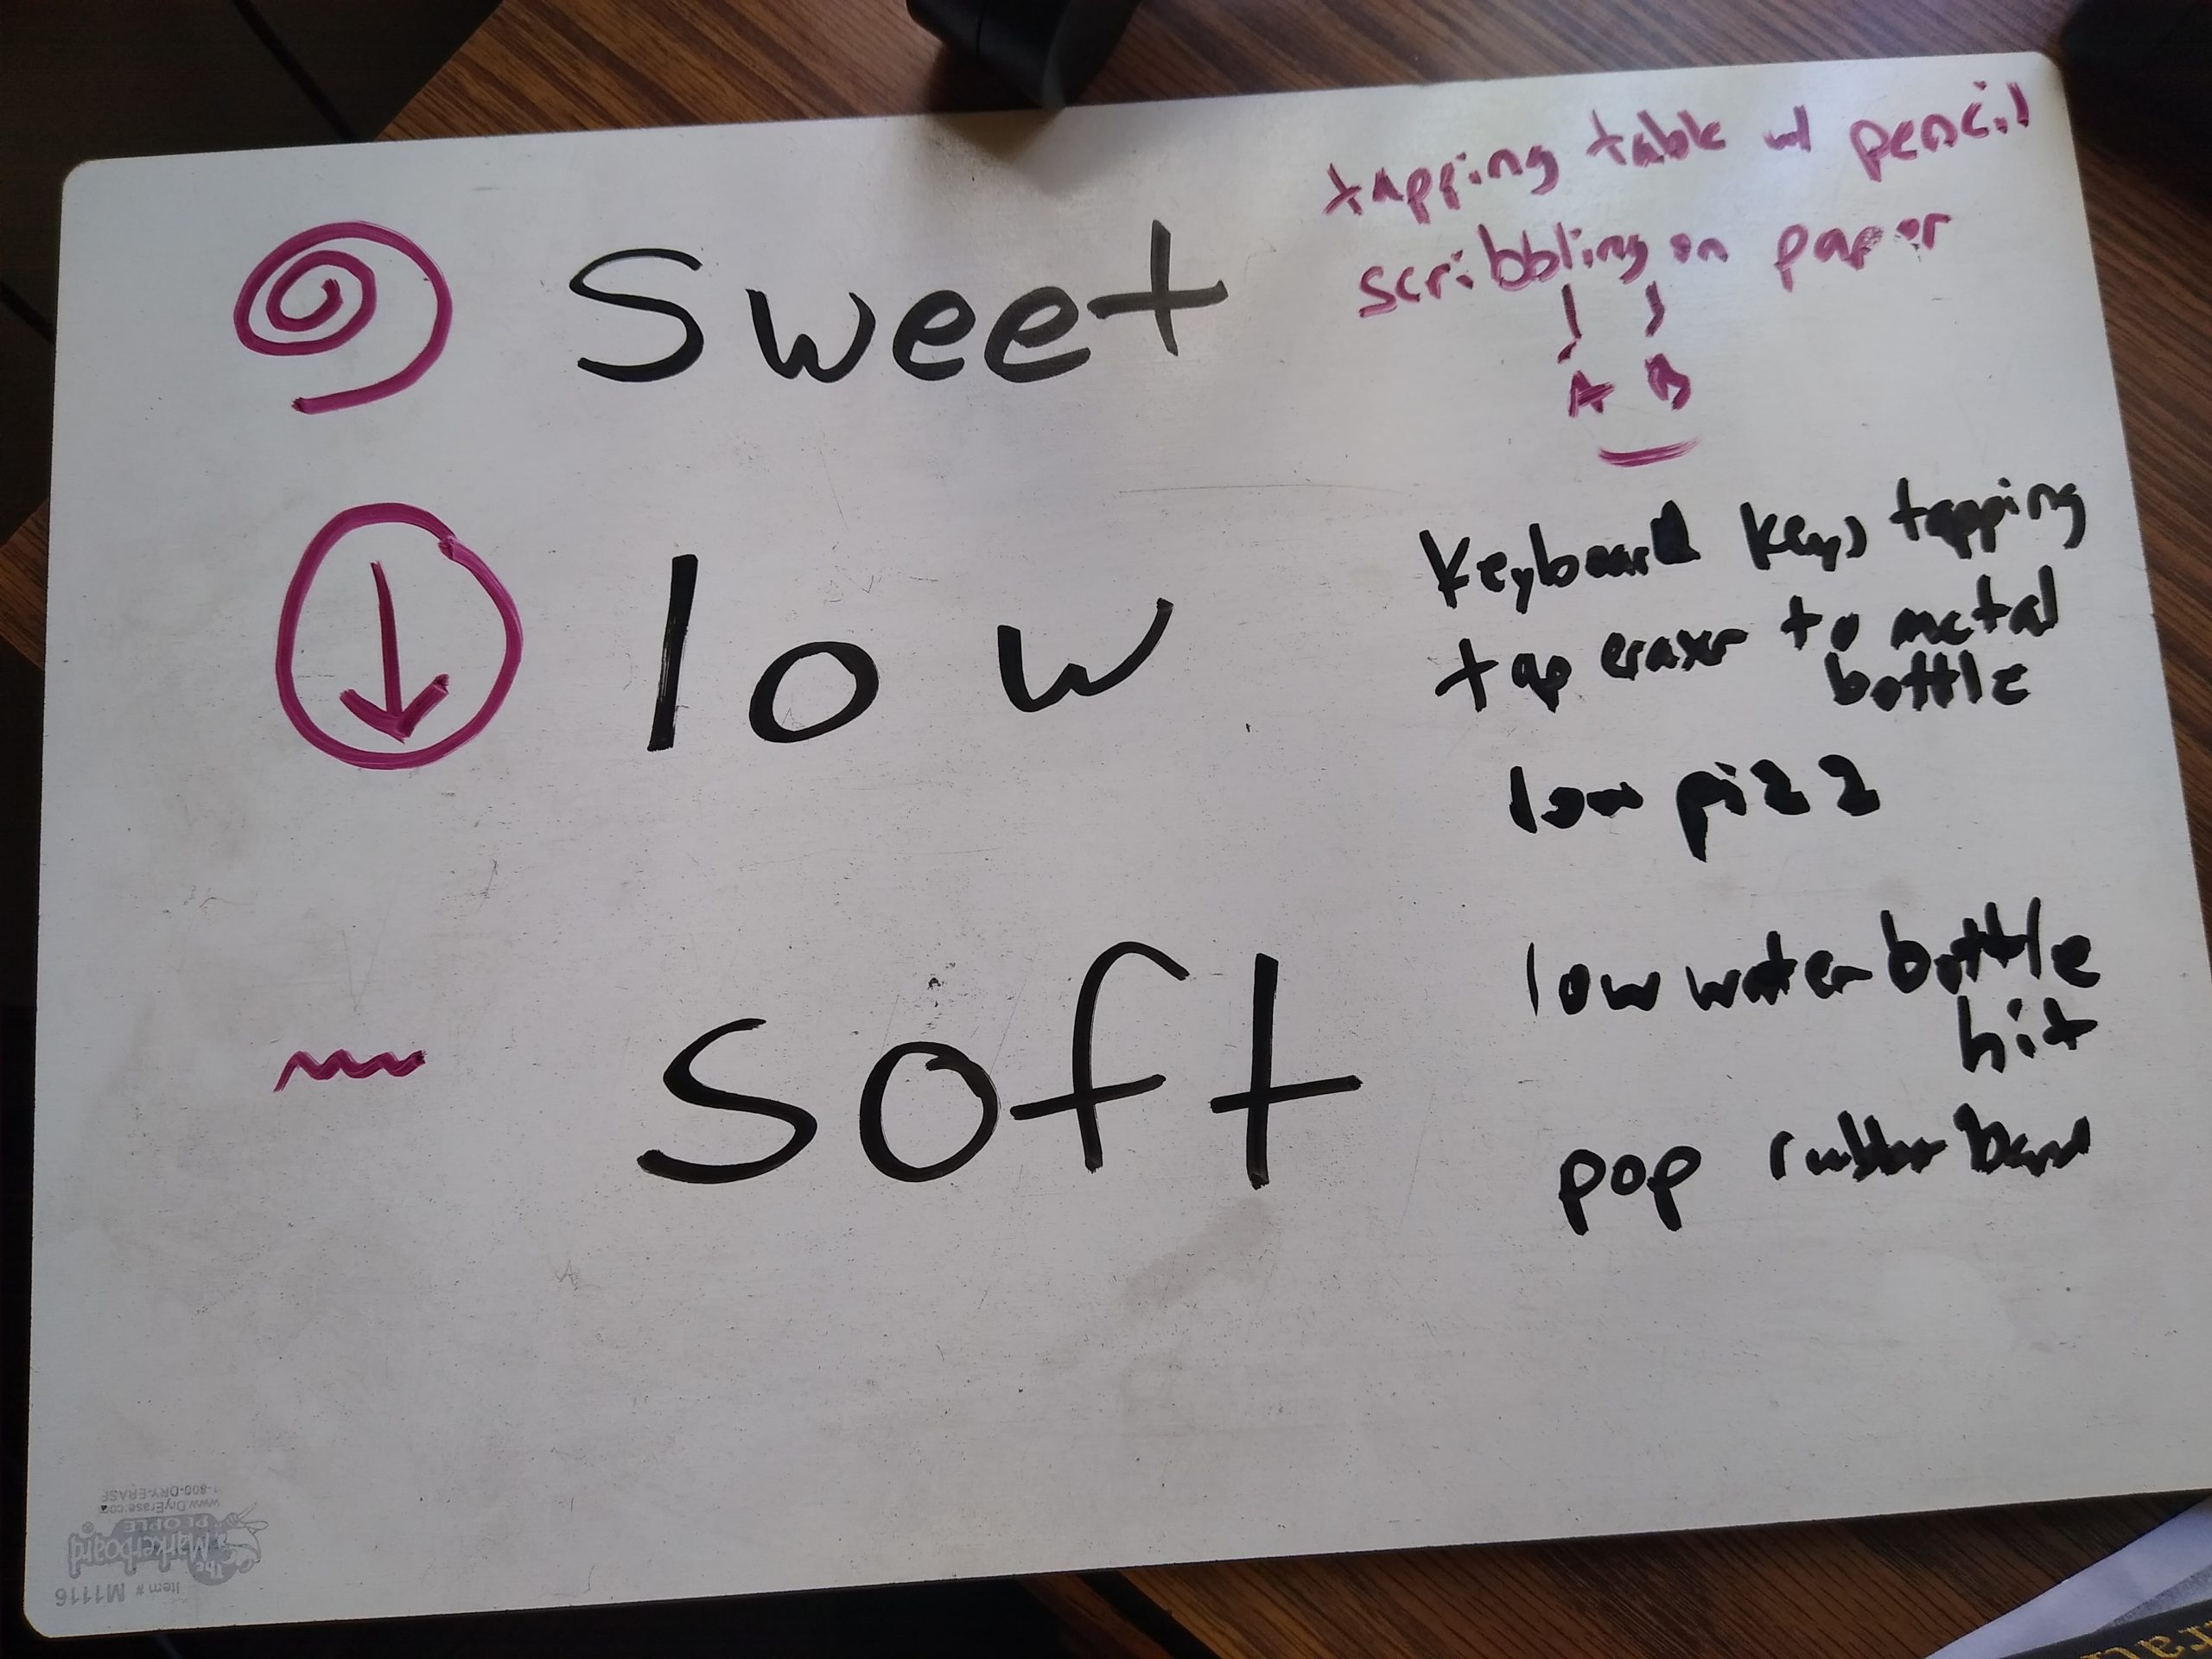 Sweet
tapping table w/ pencil
scribbling on paper
A B
low
Keyboard keys tapping
tap eraser to metal
bottle
low pizz
soft
low water bottle
hit
pop rubber band
Item # M1116
The Markerboard
PEOPLE
www.DryErase.com
1-800-DRY-ERASE